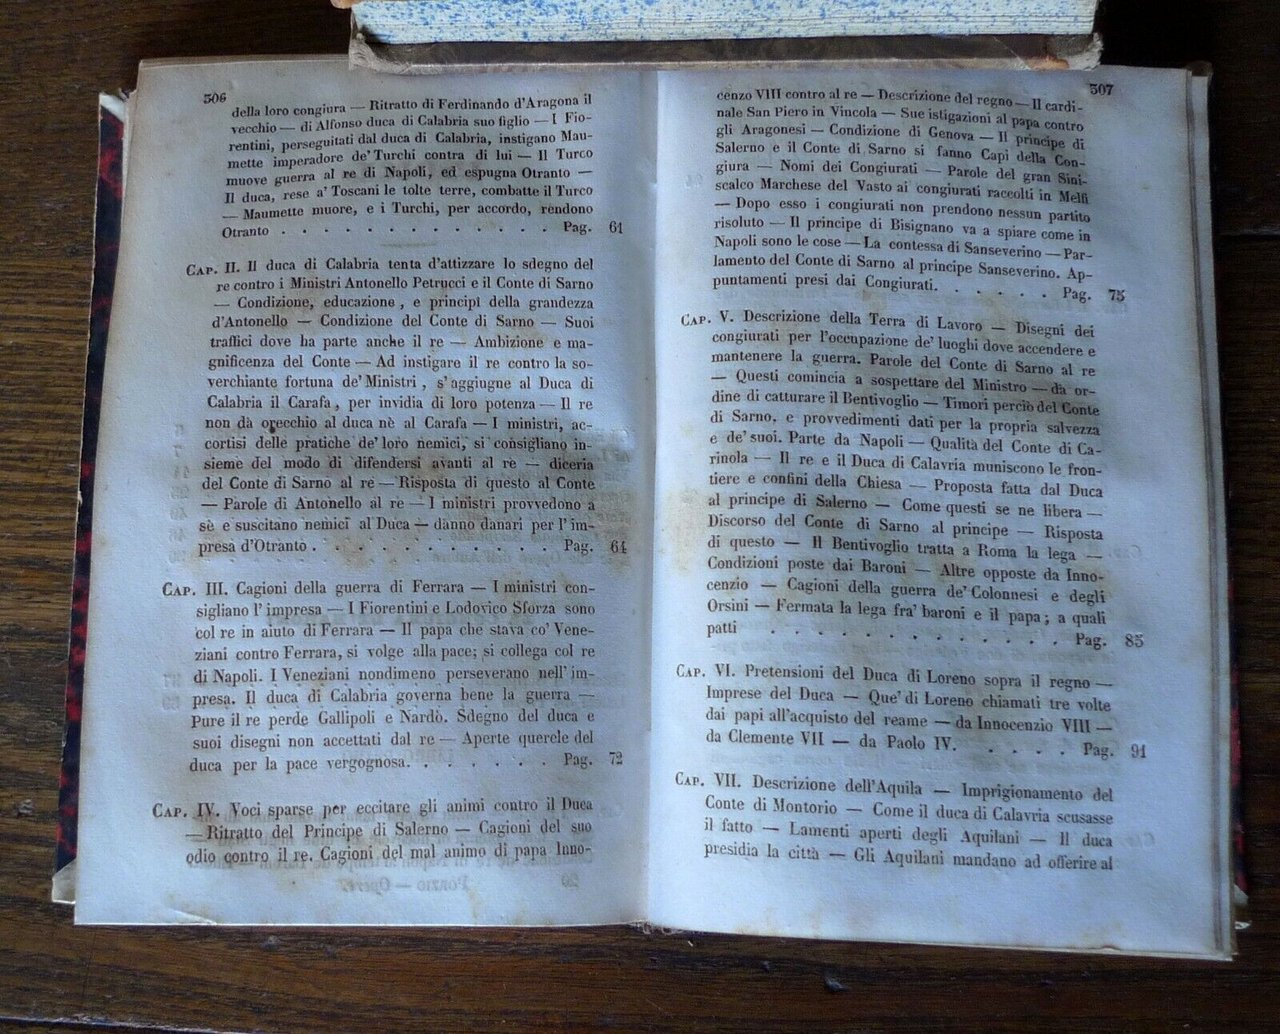 506
della loro congiura — Ritratto di Ferdinando d'Aragona il
vecchio — di Alfonso duca di Calabria suo figlio — I Fio-
rentini, perseguitati dal duca di Calabria, instigano Mau-
mette imperadore de' Turchi contra di lui — Il Turco
muove guerra al re di Napoli, ed espugna Otranto —
Il duca, rese a' Toscani le tolte terre, combatte il Turco
— Maumette muore, e i Turchi, per accordo, rendono
Otranto . . . . . . . . . . . . . Pag. 61
CAP. II. Il duca di Calabria tenta d'attizzare lo sdegno del
re contro i Ministri Antonello Petrucci e il Conte di Sarno
— Condizione, educazione, e principî della grandezza
d'Antonello — Condizione del Conte di Sarno — Suoi
traffici dove ha parte anche il re — Ambizione e ma-
gnificenza del Conte — Ad instigare il re contro la so-
verchiante fortuna de' Ministri, s'aggiugne al Duca di
Calabria il Carafa, per invidia di loro potenza — Il re
non dà orecchio al duca nè al Carafa — I ministri, ac-
cortisi delle pratiche de' loro nemici, si consigliano in-
sieme del modo di difendersi avanti al re — diceria
del Conte di Sarno al re — Risposta di questo al Conte
— Parole di Antonello al re — I ministri provvedono a
sè e suscitano nemici al Duca — danno danari per l'im-
presa d'Otranto . . . . . . . . . . . Pag. 64
CAP. III. Cagioni della guerra di Ferrara — I ministri con-
sigliano l'impresa — I Fiorentini e Lodovico Sforza sono
col re in aiuto di Ferrara — Il papa che stava co' Vene-
ziani contro Ferrara, si volge alla pace; si collega col re
di Napoli. I Veneziani nondimeno perseverano nell'im-
presa. Il duca di Calabria governa bene la guerra —
Pure il re perde Gallipoli e Nardò. Sdegno del duca e
suoi disegni non accettati dal re — Aperte querele del
duca per la pace vergognosa. . . . . . . Pag. 72
CAP. IV. Voci sparse per eccitare gli animi contro il Duca
— Ritratto del Principe di Salerno — Cagioni del suo
odio contro il re. Cagioni del mal animo di papa Inno-
507
cenzo VIII contro al re — Descrizione del regno — Il cardi-
nale San Piero in Vincola — Sue istigazioni al papa contro
gli Aragonesi — Condizione di Genova — Il principe di
Salerno e il Conte di Sarno si fanno Capi della Con-
giura — Nomi dei Congiurati — Parole del gran Sini-
scalco Marchese del Vasto ai congiurati raccolti in Melfi
— Dopo esso i congiurati non prendono nessun partito
risoluto — Il principe di Bisignano va a spiare come in
Napoli sono le cose — La contessa di Sanseverino — Par-
lamento del Conte di Sarno al principe Sanseverino. Ap-
puntamenti presi dai Congiurati. . . . . . Pag. 75
CAP. V. Descrizione della Terra di Lavoro — Disegni dei
congiurati per l'occupazione de' luoghi dove accendere e
mantenere la guerra. Parole del Conte di Sarno al re
— Questi comincia a sospettare del Ministro — dà or-
dine di catturare il Bentivoglio — Timori perciò del Conte
di Sarno, e provvedimenti dati per la propria salvezza
e de' suoi. Parte da Napoli — Qualità del Conte di Ca-
rinola — Il re e il Duca di Calavria muniscono le fron-
tiere e confini della Chiesa — Proposta fatta dal Duca
al principe di Salerno — Come questi se ne libera —
Discorso del Conte di Sarno al principe — Risposta
di questo — Il Bentivoglio tratta a Roma la lega —
Condizioni poste dai Baroni — Altre opposte da Inno-
cenzio — Cagioni della guerra de' Colonnesi e degli
Orsini — Fermata la lega fra' baroni e il papa; a quali
patti . . . . . . . . . . . . . . Pag. 85
CAP. VI. Pretensioni del Duca di Loreno sopra il regno —
Imprese del Duca — Que' di Loreno chiamati tre volte
dai papi all'acquisto del reame — da Innocenzio VIII —
da Clemente VII — da Paolo IV. . . . . Pag. 91
CAP. VII. Descrizione dell'Aquila — Imprigionamento del
Conte di Montorio — Come il duca di Calavria scusasse
il fatto — Lamenti aperti degli Aquilani — Il duca
presidia la città — Gli Aquilani mandano ad offerire al